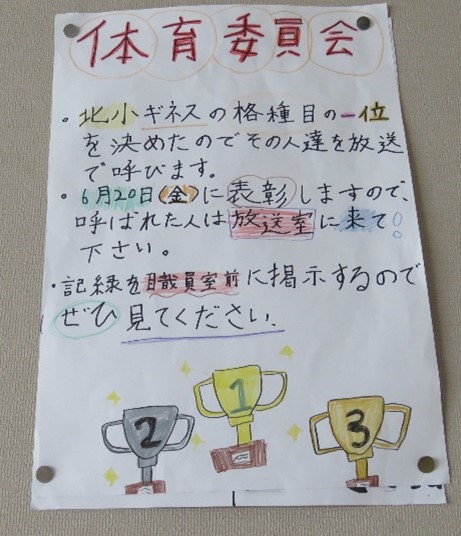 体育委員会
・北小ギネスの格種目の一位
を決めたのでその人達を放送
で呼びます。
・6月20日(金)に表彰しますので、
呼ばれた人は放送室に来て!
下さい。
・記録を職員室前に掲示するので
ぜひ見てください.
2
1
3